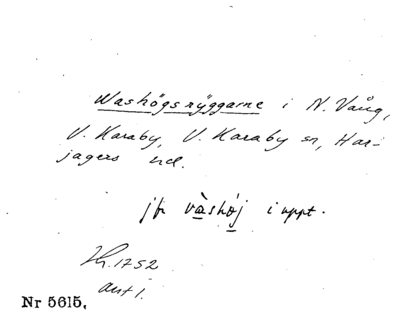 Washögsryggarne i N. Vång,
V. Karaby, V. Karaby sn, Har-
jagers hd.
jfr vàshøj i uppt.
1752
akt 1.
Nr 5615.